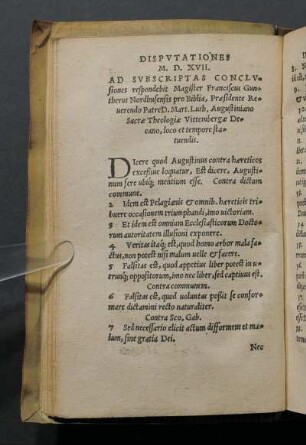 DISPVTATIONES
M. D. XVII.
AD SVBSCRIPTAS CONCLV⸗
siones respondebit Magister Franciscus Gun⸗
therus Nordhusensis pro Biblia, Præsidente Re
uerendo Patre D. Mart. Luth. Augustiniano
Sacræ Theologiæ Vittenbergæ De⸗
cano, loco et tempore sta⸗
tuendis.
Dicere quod Augustinus contra hæreticos
excessiue loquatur, Est dicere, Augusti⸗
num fere ubiq; mentitum esse. Contra dictum
commune.
2 Idem est Pelagianis & omnib. hæreticis tri⸗
buere occasionem triumphandi, imo uictoriam.
3 Et idem est omnium Ecclesiasticorum Docto⸗
rum autoritatem illusioni exponere.
4 Veritas itaq; est, quod homo arbor mala fa⸗
ctus, non potest nisi malum uelle & facere.
5 Falsitas est, quod appetitus liber potest in u⸗
trunq; oppositorum, imo nec liber, sed captiuus est.
Contra communem.
6 Falsitas est, quod uoluntas possit se confor⸗
mare dictamini recto naturaliter.
Contra Sco, Gab.
7 Sed necessario elicit actum difformem et ma⸗
lum, sine gratia Dei.
Nec